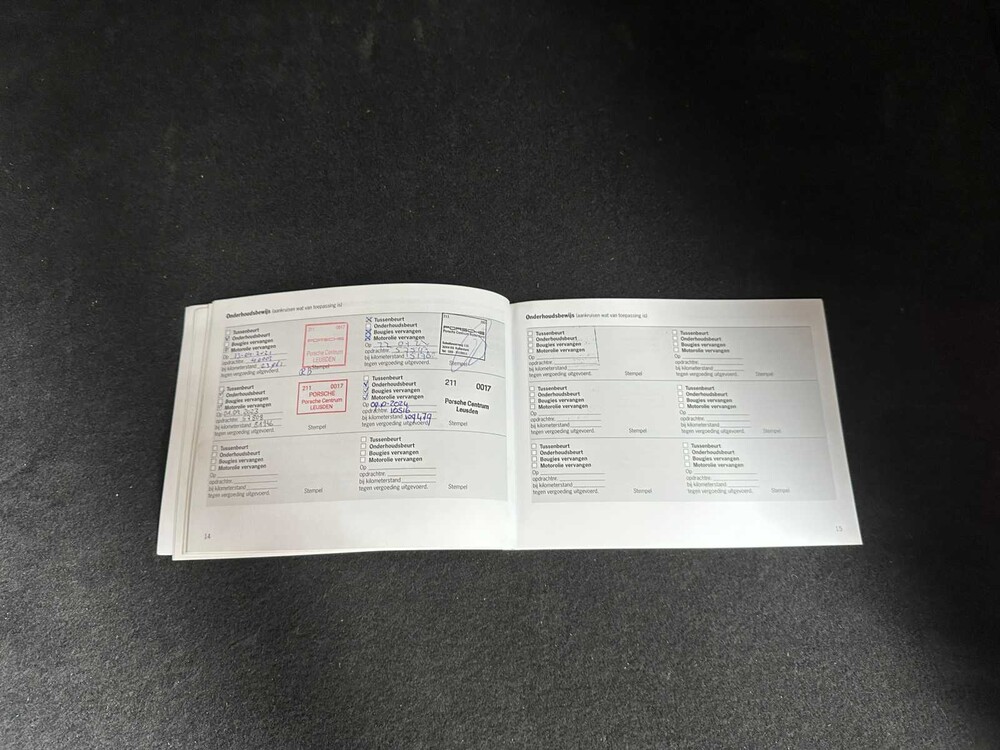 Onderhoudsbewijs (aankruisen wat van toepassing is)
Tussenbeurt
Onderhoudsbeurt
Bougies vervangen
Motorolie vervangen
Op
opdrachtnr.
bij kilometerstand
tegen vergoeding uitgevoerd.
Stempel
211 0017
PORSCHE
Porsche Centrum
LEUSDEN
Tussenbeurt
Onderhoudsbeurt
Bougies vervangen
Motorolie vervangen
Op
opdrachtnr.
bij kilometerstand
tegen vergoeding uitgevoerd.
Stempel
211
PORSCHE
Tussenbeurt
Onderhoudsbeurt
Bougies vervangen
Motorolie vervangen
Op
opdrachtnr.
bij kilometerstand
tegen vergoeding uitgevoerd.
Stempel
211 0017
PORSCHE
Porsche Centrum
LEUSDEN
Tussenbeurt
Onderhoudsbeurt
Bougies vervangen
Motorolie vervangen
Op
opdrachtnr. 10516
bij kilometerstand 109479
tegen vergoeding uitgevoerd.
Stempel
211 0017
Porsche Centrum
Leusden
Tussenbeurt
Onderhoudsbeurt
Bougies vervangen
Motorolie vervangen
Op
opdrachtnr.
bij kilometerstand
tegen vergoeding uitgevoerd.
Stempel
Tussenbeurt
Onderhoudsbeurt
Bougies vervangen
Motorolie vervangen
Op
opdrachtnr.
bij kilometerstand
tegen vergoeding uitgevoerd.
Stempel
14
Onderhoudsbewijs (aankruisen wat van toepassing is)
Tussenbeurt
Onderhoudsbeurt
Bougies vervangen
Motorolie vervangen
Op
opdrachtnr.
bij kilometerstand
tegen vergoeding uitgevoerd.
Stempel
Tussenbeurt
Onderhoudsbeurt
Bougies vervangen
Motorolie vervangen
Op
opdrachtnr.
bij kilometerstand
tegen vergoeding uitgevoerd.
Stempel
Tussenbeurt
Onderhoudsbeurt
Bougies vervangen
Motorolie vervangen
Op
opdrachtnr.
bij kilometerstand
tegen vergoeding uitgevoerd.
Stempel
Tussenbeurt
Onderhoudsbeurt
Bougies vervangen
Motorolie vervangen
Op
opdrachtnr.
bij kilometerstand
tegen vergoeding uitgevoerd.
Stempel
Tussenbeurt
Onderhoudsbeurt
Bougies vervangen
Motorolie vervangen
Op
opdrachtnr.
bij kilometerstand
tegen vergoeding uitgevoerd.
Stempel
Tussenbeurt
Onderhoudsbeurt
Bougies vervangen
Motorolie vervangen
Op
opdrachtnr.
bij kilometerstand
tegen vergoeding uitgevoerd.
Stempel
15